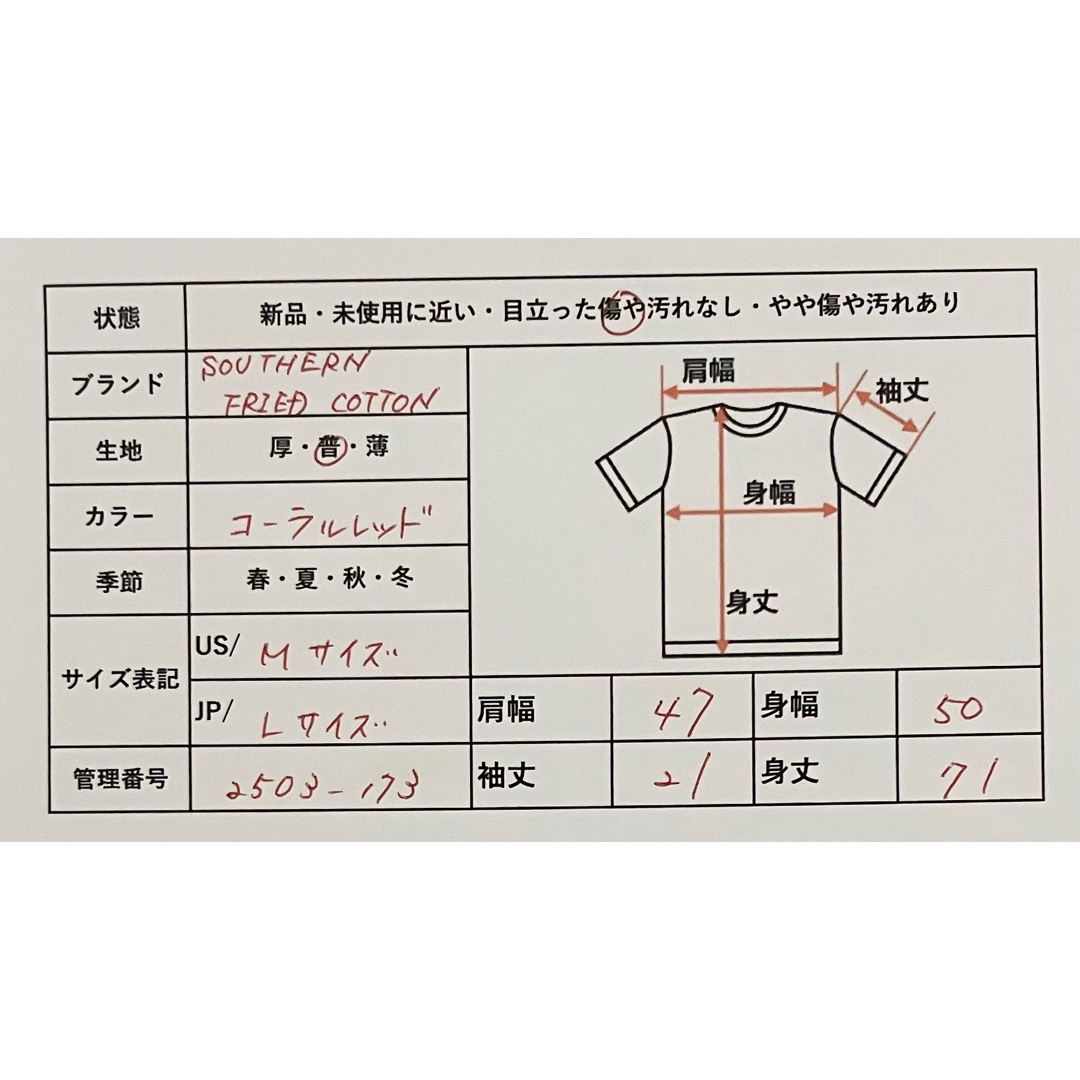 状態 新品・未使用に近い・目立った傷や汚れなし・やや傷や汚れあり
ブランド SOUTHERN
FRIED COTTON
生地 厚・普・薄
カラー コーラルレッド
季節 春・夏・秋・冬
サイズ表記
US/ Mサイズ
JP/ Lサイズ
管理番号 2503-173
肩幅
袖丈
身幅
身丈
肩幅 47 身幅 50
袖丈 21 身丈 71